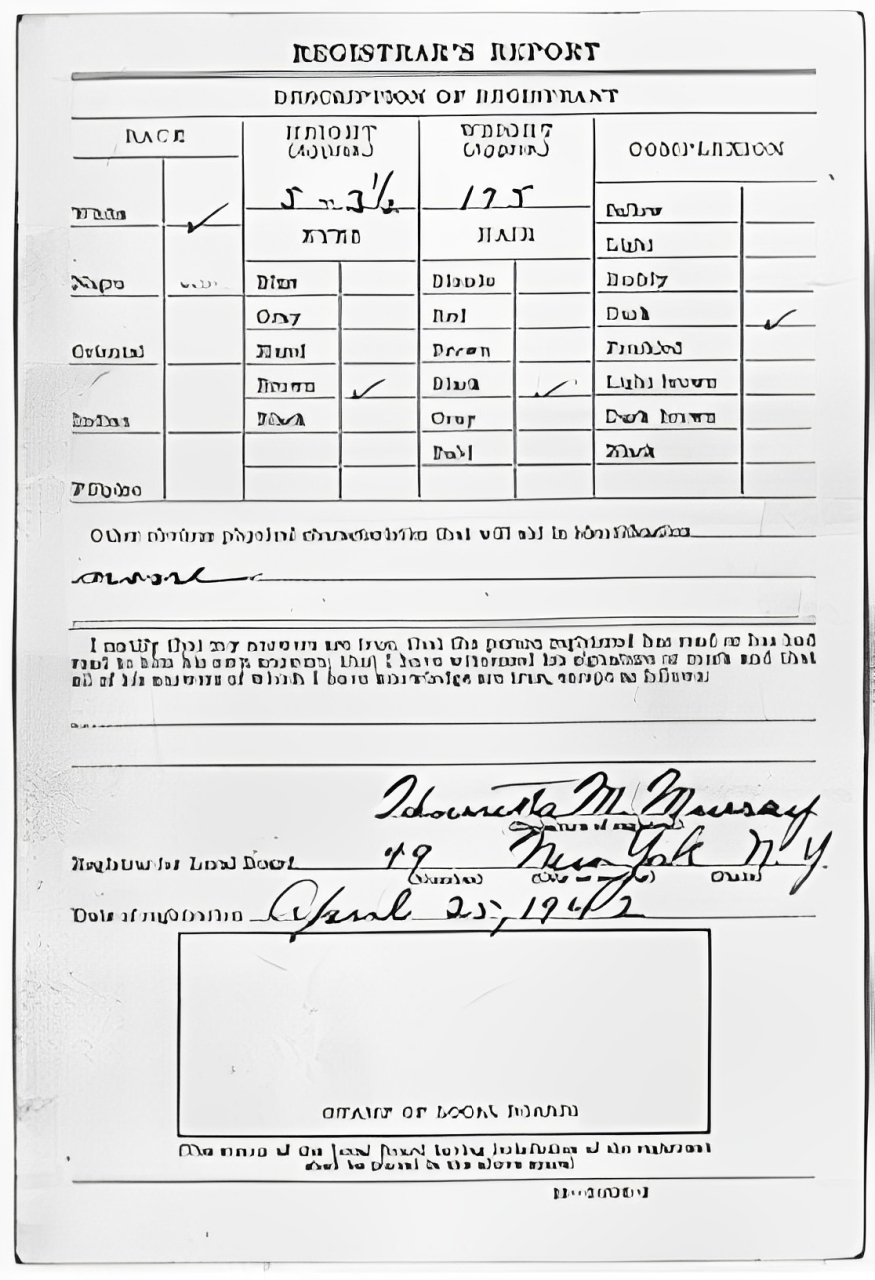 REGISTRAR'S REPORT
DESCRIPTION OF REGISTRANT
RACE
HEIGHT
(Approx.)
WEIGHT
(Approx.)
COMPLEXION
5-3 1/2
175
White ✓
EYES
HAIR
Sallow
Light
Negro
Blue
Blonde
Ruddy
Gray
Red
Dark ✓
Oriental
Hazel
Brown
Freckled
Brown ✓
Black ✓
Light brown
Indian
Black
Gray
Dark brown
Bald
Black
Filipino
Other obvious physical characteristics that will aid in identification
none
I certify that my answers are true; that the person registered has read or has had
read to him his own answers; that I have witnessed his signature or mark and that
all of his answers of which I have knowledge are true, except as follows:
M. Murray
Registrar for Local Board 49 New York N. Y.
(Number)
Date of registration April 25, 1942
STAMP OF LOCAL BOARD